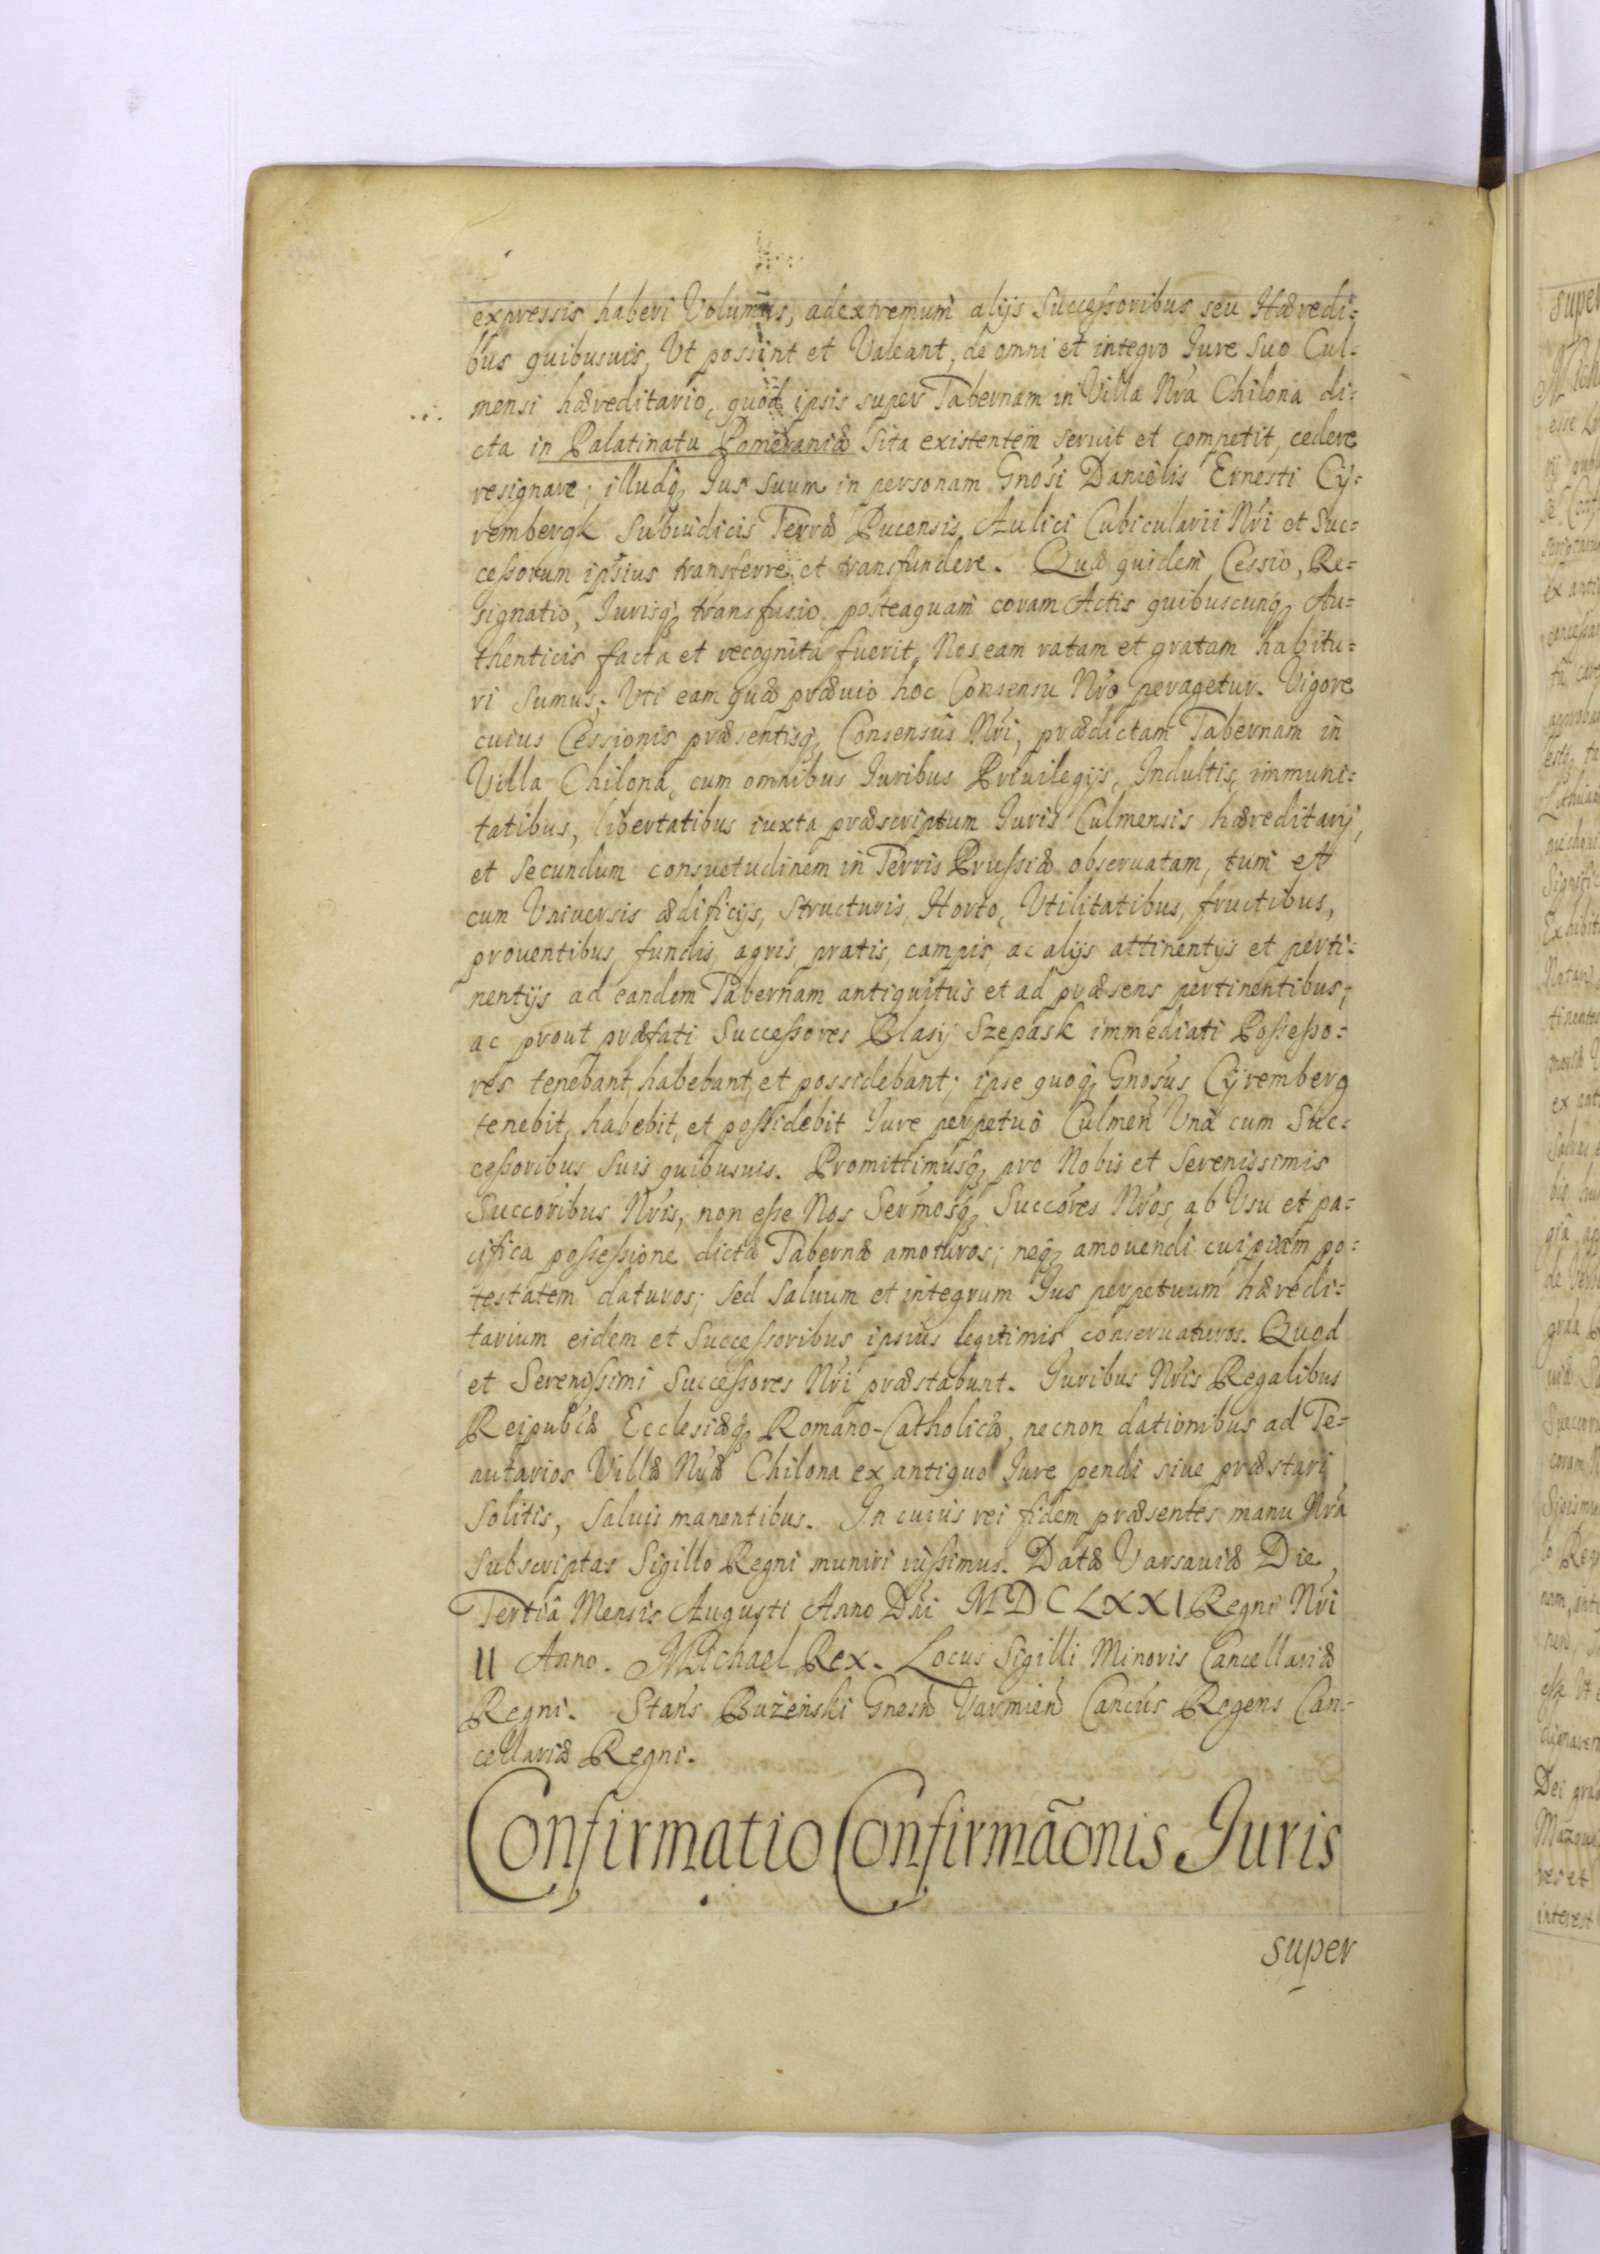 expressis haberi Volumus, adextremum alijs Successoribus seu Hæredi-
bus quibusuis, Ut possint et Valeant, de omni et integro Jure Suo Cul-
mensi hæreditario, quod ipsis super Tabernam in Villa Nra Chilona di-
cta in Palatinatu Pomeraniæ Sita existentem seruit et competit, cedere
resignare; illudq Jus Suum in personam Gnosi Danielis Ernesti Cÿ-
rembergk Subiudicis Terræ Pucensis, Aulici Cubicularii Nri et Suc-
cessorum ipsius transferre, et transfundere. Quæ quidem Cessio, Re-
signatio, Jurisq transfusio, posteaquam coram Actis quibuscunq Au-
thenticis facta et recognita fuerit, Nos eam ratam et gratam habitu-
ri Sumus; Uti eam quæ præuio hoc Consensu Nro peragetur. Vigore
cuius Cessionis præsentisq Consensus Nri, prædictam Tabernam in
Villa Chilona, cum omnibus Juribus Priuilegijs, Indultis, immuni-
tatibus, libertatibus iuxta præscriptum Juris Culmensis hæreditarij,
et Secundum consuetudinem in Terris Prussiæ obseruatam, tum et
cum Vniversis ædificijs, structuris, Horto, Vtilitatibus, fructibus,
prouentibus, fundis, agris, pratis, campis, ac alijs attinentijs et perti-
nentijs ad eandem Tabernam antiquitus et ad præsens pertinentibus;
ac prout præfati Successores Blasij Szepask immediati Possesso-
res tenebant, habebant, et possidebant; ipse quoq Gnosus Cÿremberg
tenebit, habebit, et possidebit Jure perpetuo Culmen Unà cum Suc-
cessoribus Suis quibusuis. Promittimusq pro Nobis et Serenissimis
Succoribus Nris, non esse Nos Sermosq Succores Nros, ab Usu et pa-
cifica possessione dictæ Tabernæ amoturos; neq amouendi cuipiam po-
testatem daturos; sed Saluum et integrum Jus perpetuum hæredi-
tarium eidem et Successoribus ipsius legitimis conseruaturos. Quod
et Serenissimi Successores Nri præstabunt. Juribus Nris Regalibus
Reipubcæ Ecclesiæq Romano-Catholicæ, necnon dationibus ad Te-
nutarios Villæ Nræ Chilona ex antiquo Jure pendi siue præstari
Solitis, Saluis manentibus. In cuius rei fidem præsentes manu Nra
Subscriptas Sigillo Regni muniri iussimus. Datæ Varsaviæ Die
Tertiâ Mensis Augusti Anno Dni MDCLXXI Regni Nri
II Anno. Michael Rex. Locus Sigilli Minoris Cancellariæ
Regni. Stans Bużenski Gnesn Varmien Cancus Regens Can-
cellariæ Regni.
Confirmatio Confirmãonis Juris
super